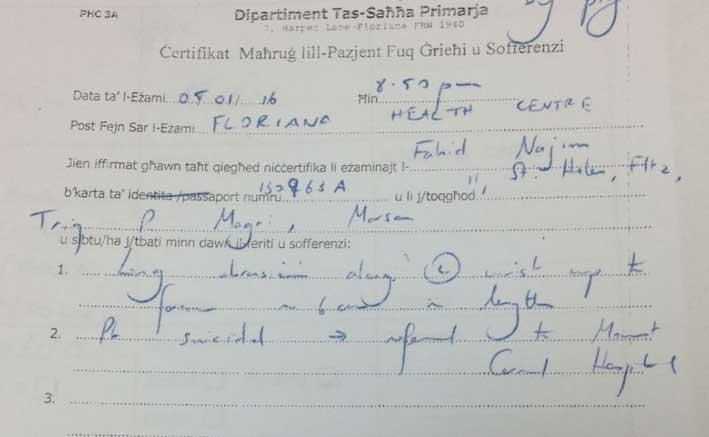 PHC 3A
Dipartiment Tas-Saħħa Primarja
7, Harper Lane-Floriana FRN 1940
Ċertifikat Maħruġ lill-Pazjent Fuq Ġrieħi u Sofferenzi
Data ta' l-Eżami 05 01/ 16 Ħin 8.50 pm
Post Fejn Sar l-Eżami FLORIANA HEALTH CENTRE
Jien iffirmat għawn taħt qiegħed niċċertifika li eżaminajt l- Fahid Najim
b'karta ta' identita/passaport numru u li j/toqgħod 11 St. Helen, Flt 2,
Triq P Magri, Marsa
u sibtu/ha j/tbati minn dawn il-feriti u sofferenzi:
1. Long abrasion along (L) wrist up to
forearm 6 cm in length
2. Pt suicidal → referred to Mount
Carmel Hospital
3.